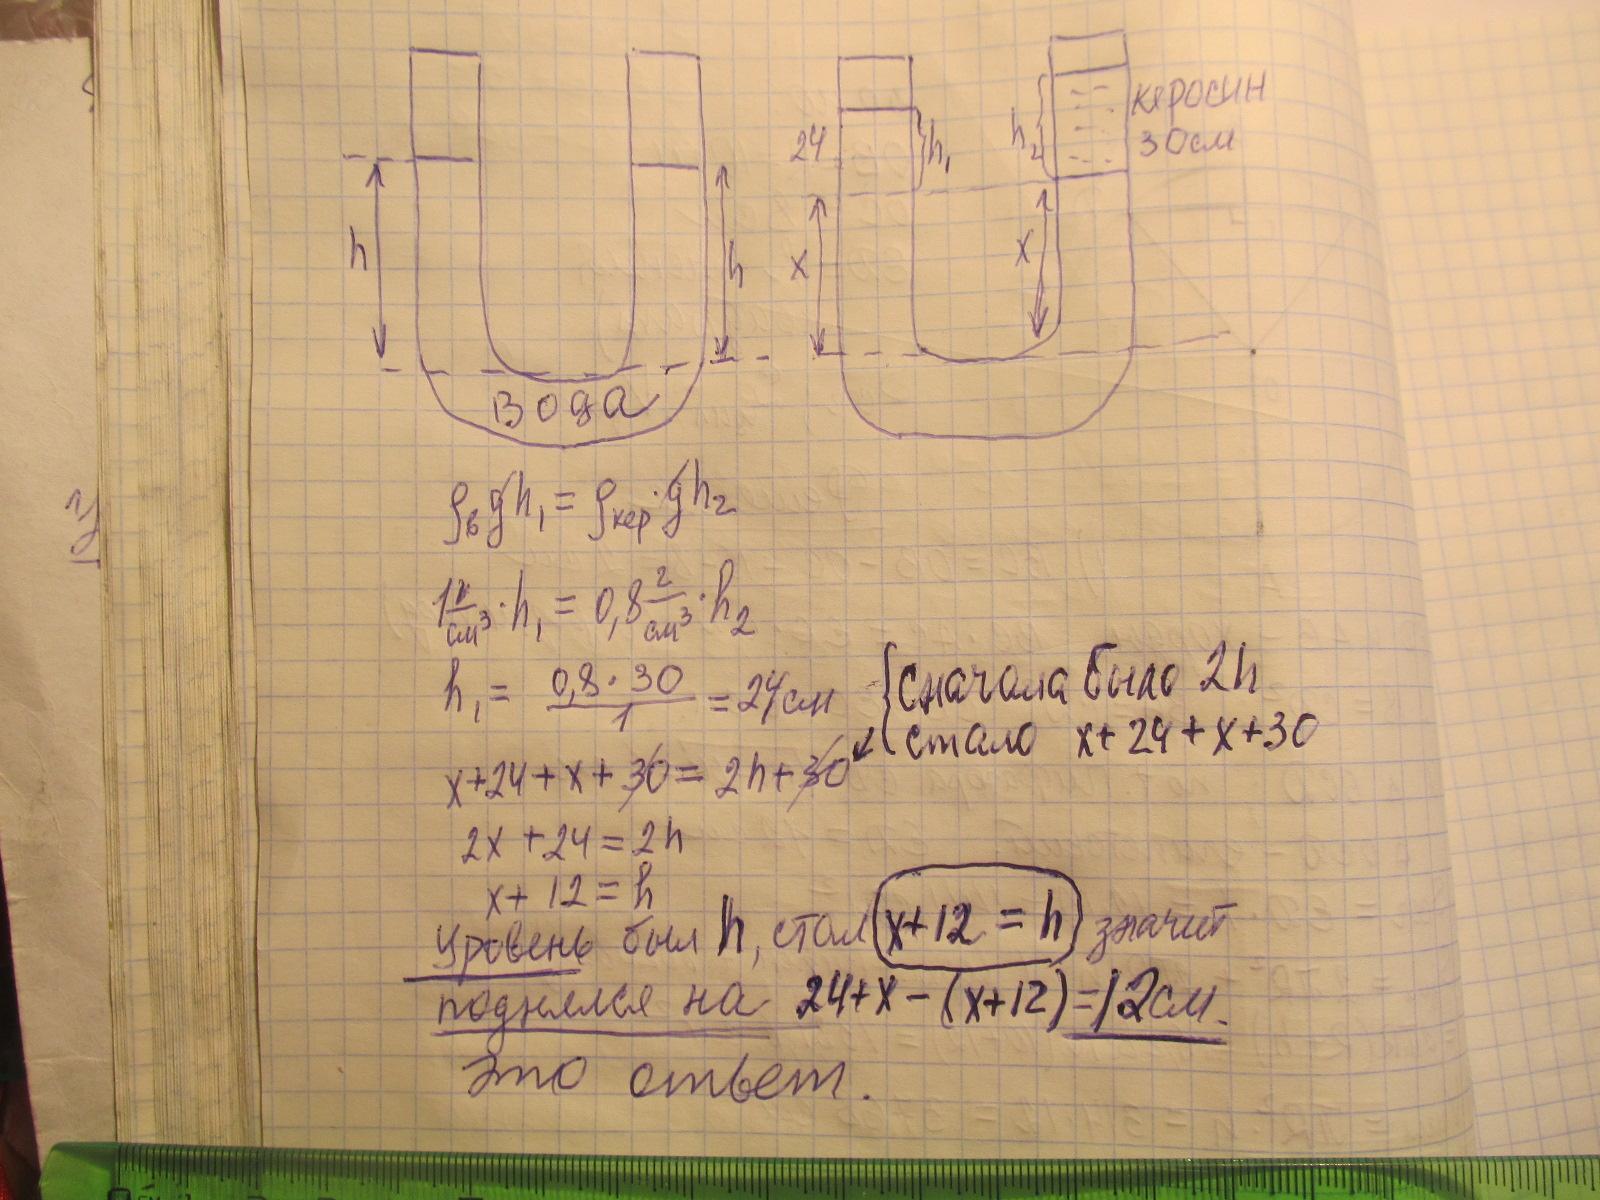 h
h
Вода
24
x
h₁
x
h₂
керосин
30см
ρв gh₁ = ρкер · gh₂
1 г/см³ · h₁ = 0,8 г/см³ · h₂
h₁ = 0,8 · 30 / 1 = 24см
{ сначала было 2h
стало x+24+x+30
x+24+x+30 = 2h+30
2x+24=2h
x+12=h
уровень был h, стал x+12 = h значит
поднялся на 24+x-(x+12)=12см.
Это ответ.